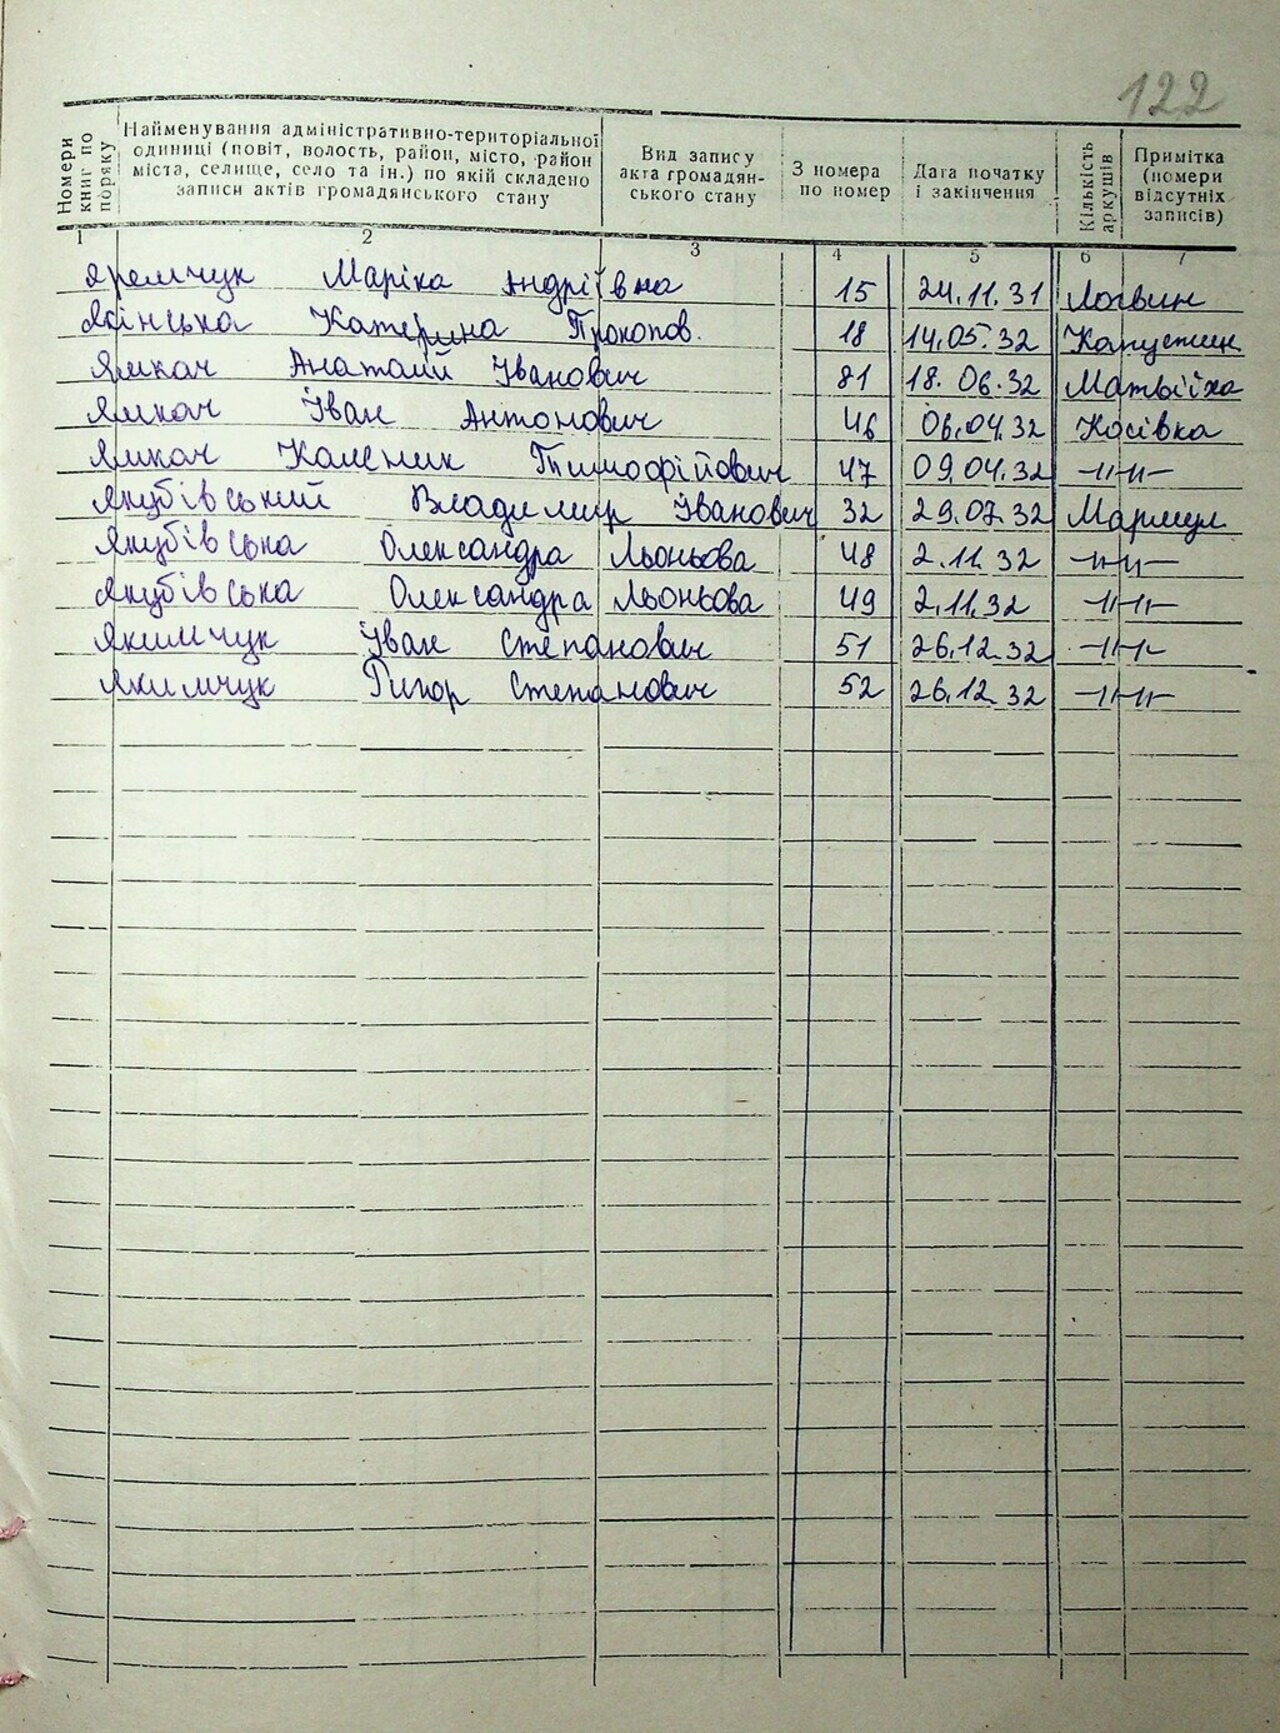 122
Номери книг по поряку
Найменування адміністративно-територіальної одиниці (повіт, волость, район, місто, район міста, селище, село та ін.) по якій складено записи актів громадянського стану
Вид запису акта громадян-ського стану
З номера по номер
Дата початку і закінчення
Кількість аркушів
Примітка (номери відсутніх записів)
1 2 3 4 5 6 7
Яремчук Маріка Андріївна 15 24.11.31 Логвин
Ясінська Катерина Прокопов. 18 14.05.32
Ямкач Анатолій Іванович 81 18.06.32 Матвіїха
Ямкач Іван Антонович 46 06.04.32 Косівка
Ямкач Каленик Тимофійович 47 09.04.32 -\\-\\-
Якубівський Владимир Іванович 32 29.07.32 Мармул
Якубівська Олександра Льоньова 48 2.11.32 -\\-\\-
Якубівська Олександра Льоньова 49 2.11.32 -\\-\\-
Якимчук Іван Степанович 51 26.12.32 -\\-\\-
Якимчук Гигор Степанович 52 26.12.32 -\\-\\-